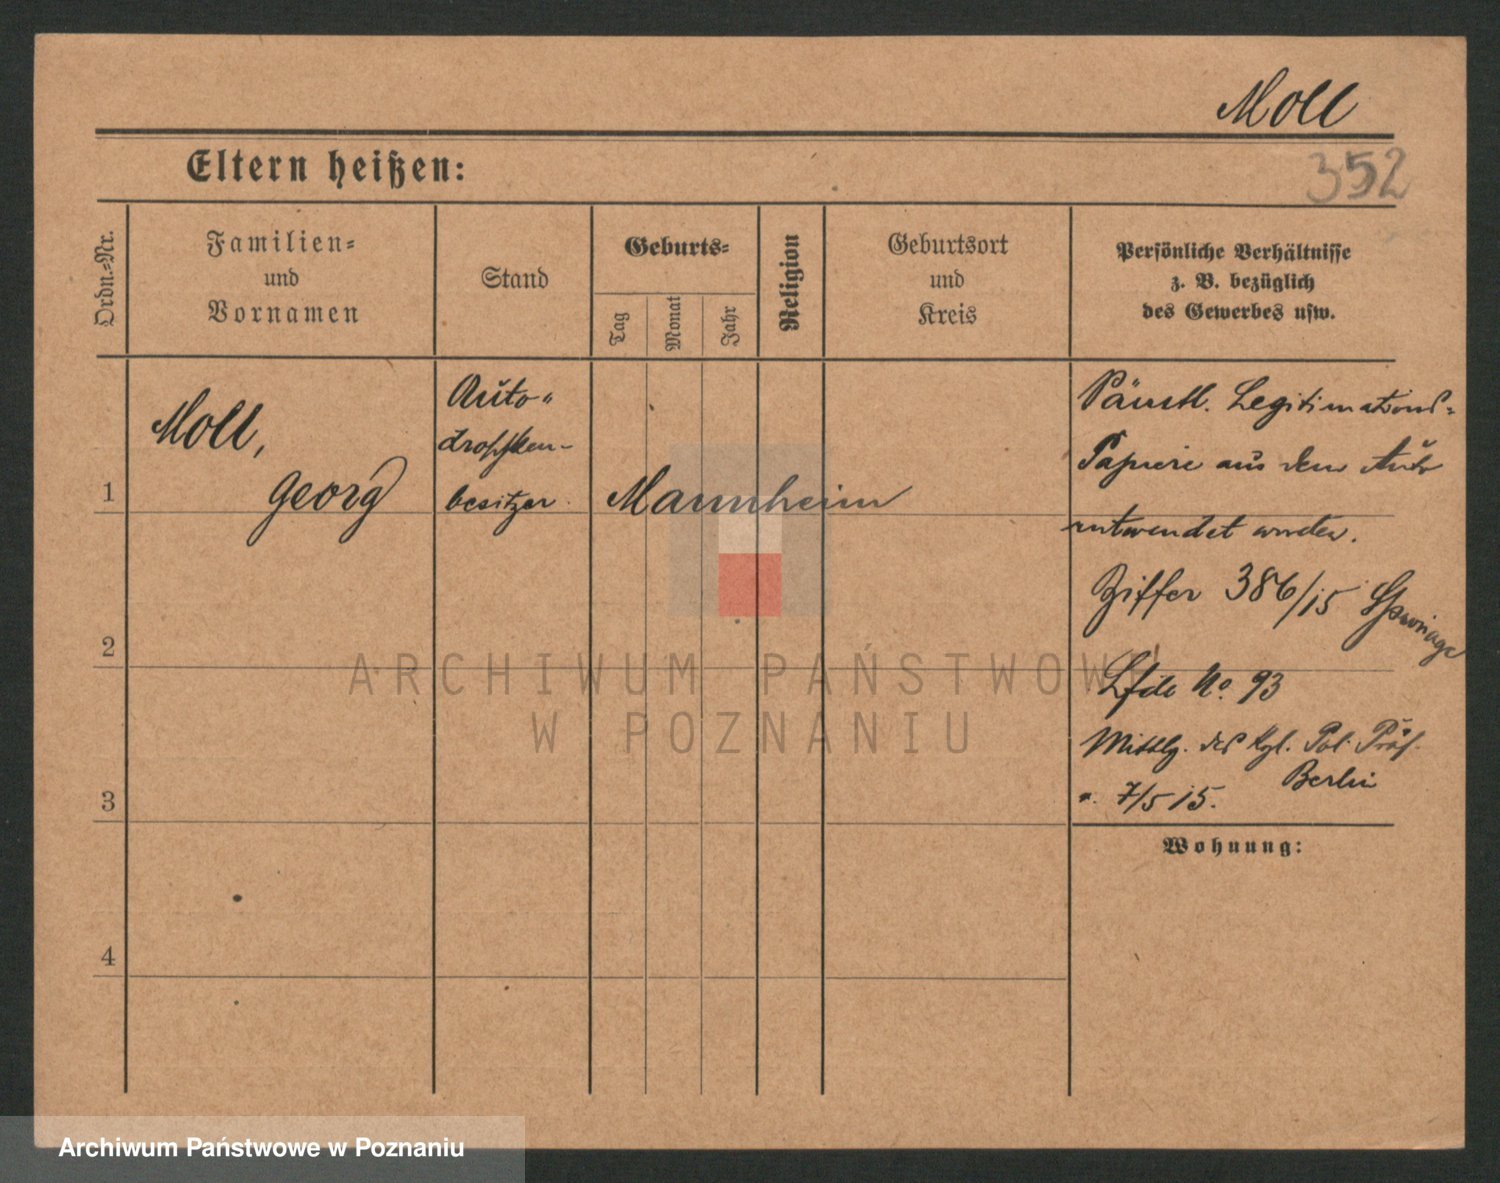 Moll
352
Eltern heißen:
Ordn.=Nr.
Familien=
und
Vornamen
Stand
Geburts=
Tag
Monat
Jahr
Religion
Geburtsort
und
Kreis
Persönliche Verhältnisse
z. B. bezüglich
des Gewerbes usw.
1
Moll,
Georg
Auto=
droschken-
besitzer.
Mannheim
Sämtl. Legitimations=
Papiere aus dem Auto
entwendet worden.
Ziffer 386/15 Spionage
2
Lfde No. 93
Mittlg. des Kgl. Pol. Präs.
Berlin
v. 7/5 15.
3
Wohnung:
4
ARCHIWUM PAŃSTWOWE
W POZNANIU
Archiwum Państwowe w Poznaniu